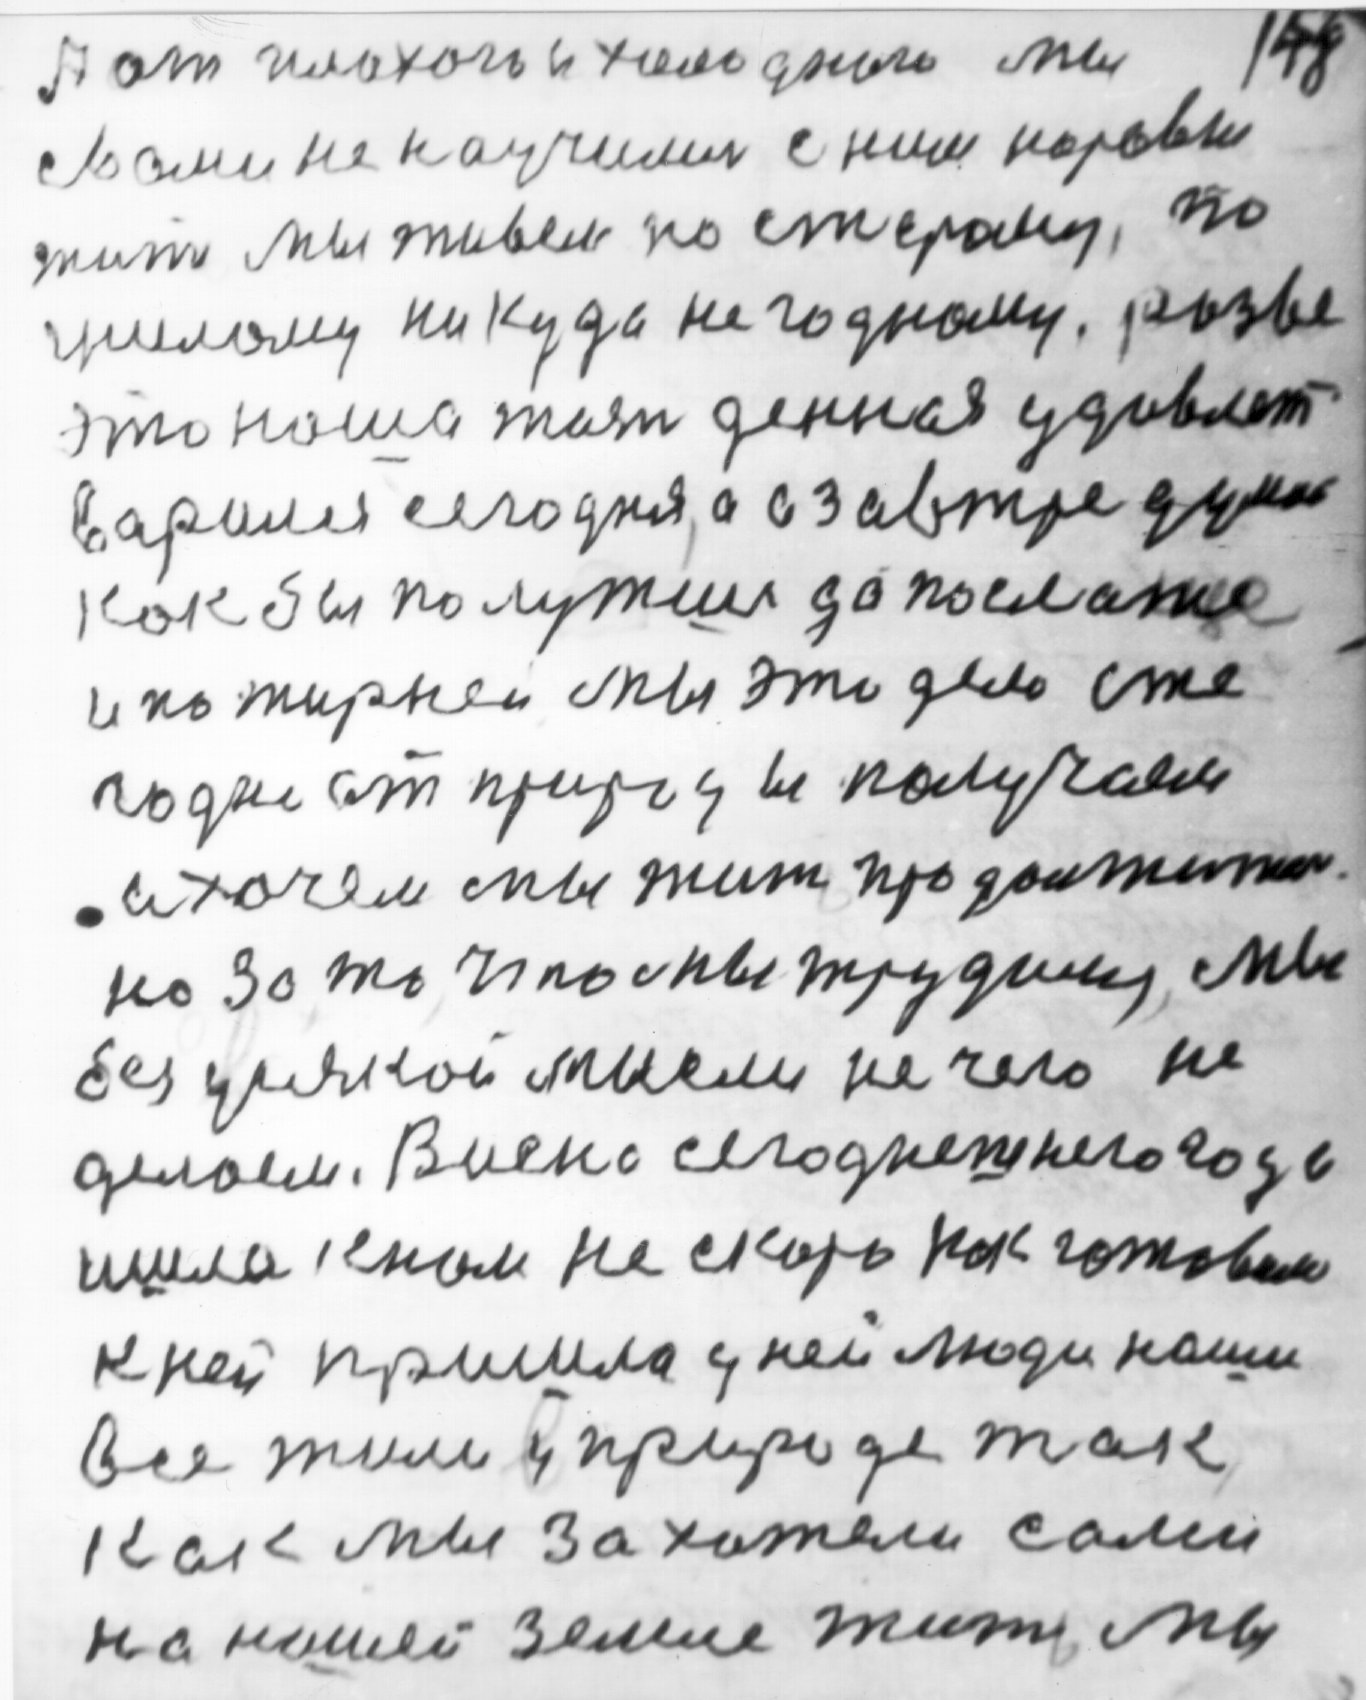 А от плохого и холодного мы 148
свами не научились с ним наровне
жить мы живем по старому, по
ушлому никуда негодному. разве
это наша жизн денная удовлет
варимся сегодня, а озавтре думаем
как бы получши да послаже
и по жирней мы это дело еже
годно от природы получаем
и хочем мы жить продолжительно.
но за то что мы трудимся, мы
без усякой мысли не чего не
делаем. Висна сегоднешнего года
ишла кнам не скоро как готовая
к ней пришла у ней люди наши
все жили у природе так,
как мы захотели сами
на нашей земле жить, мы